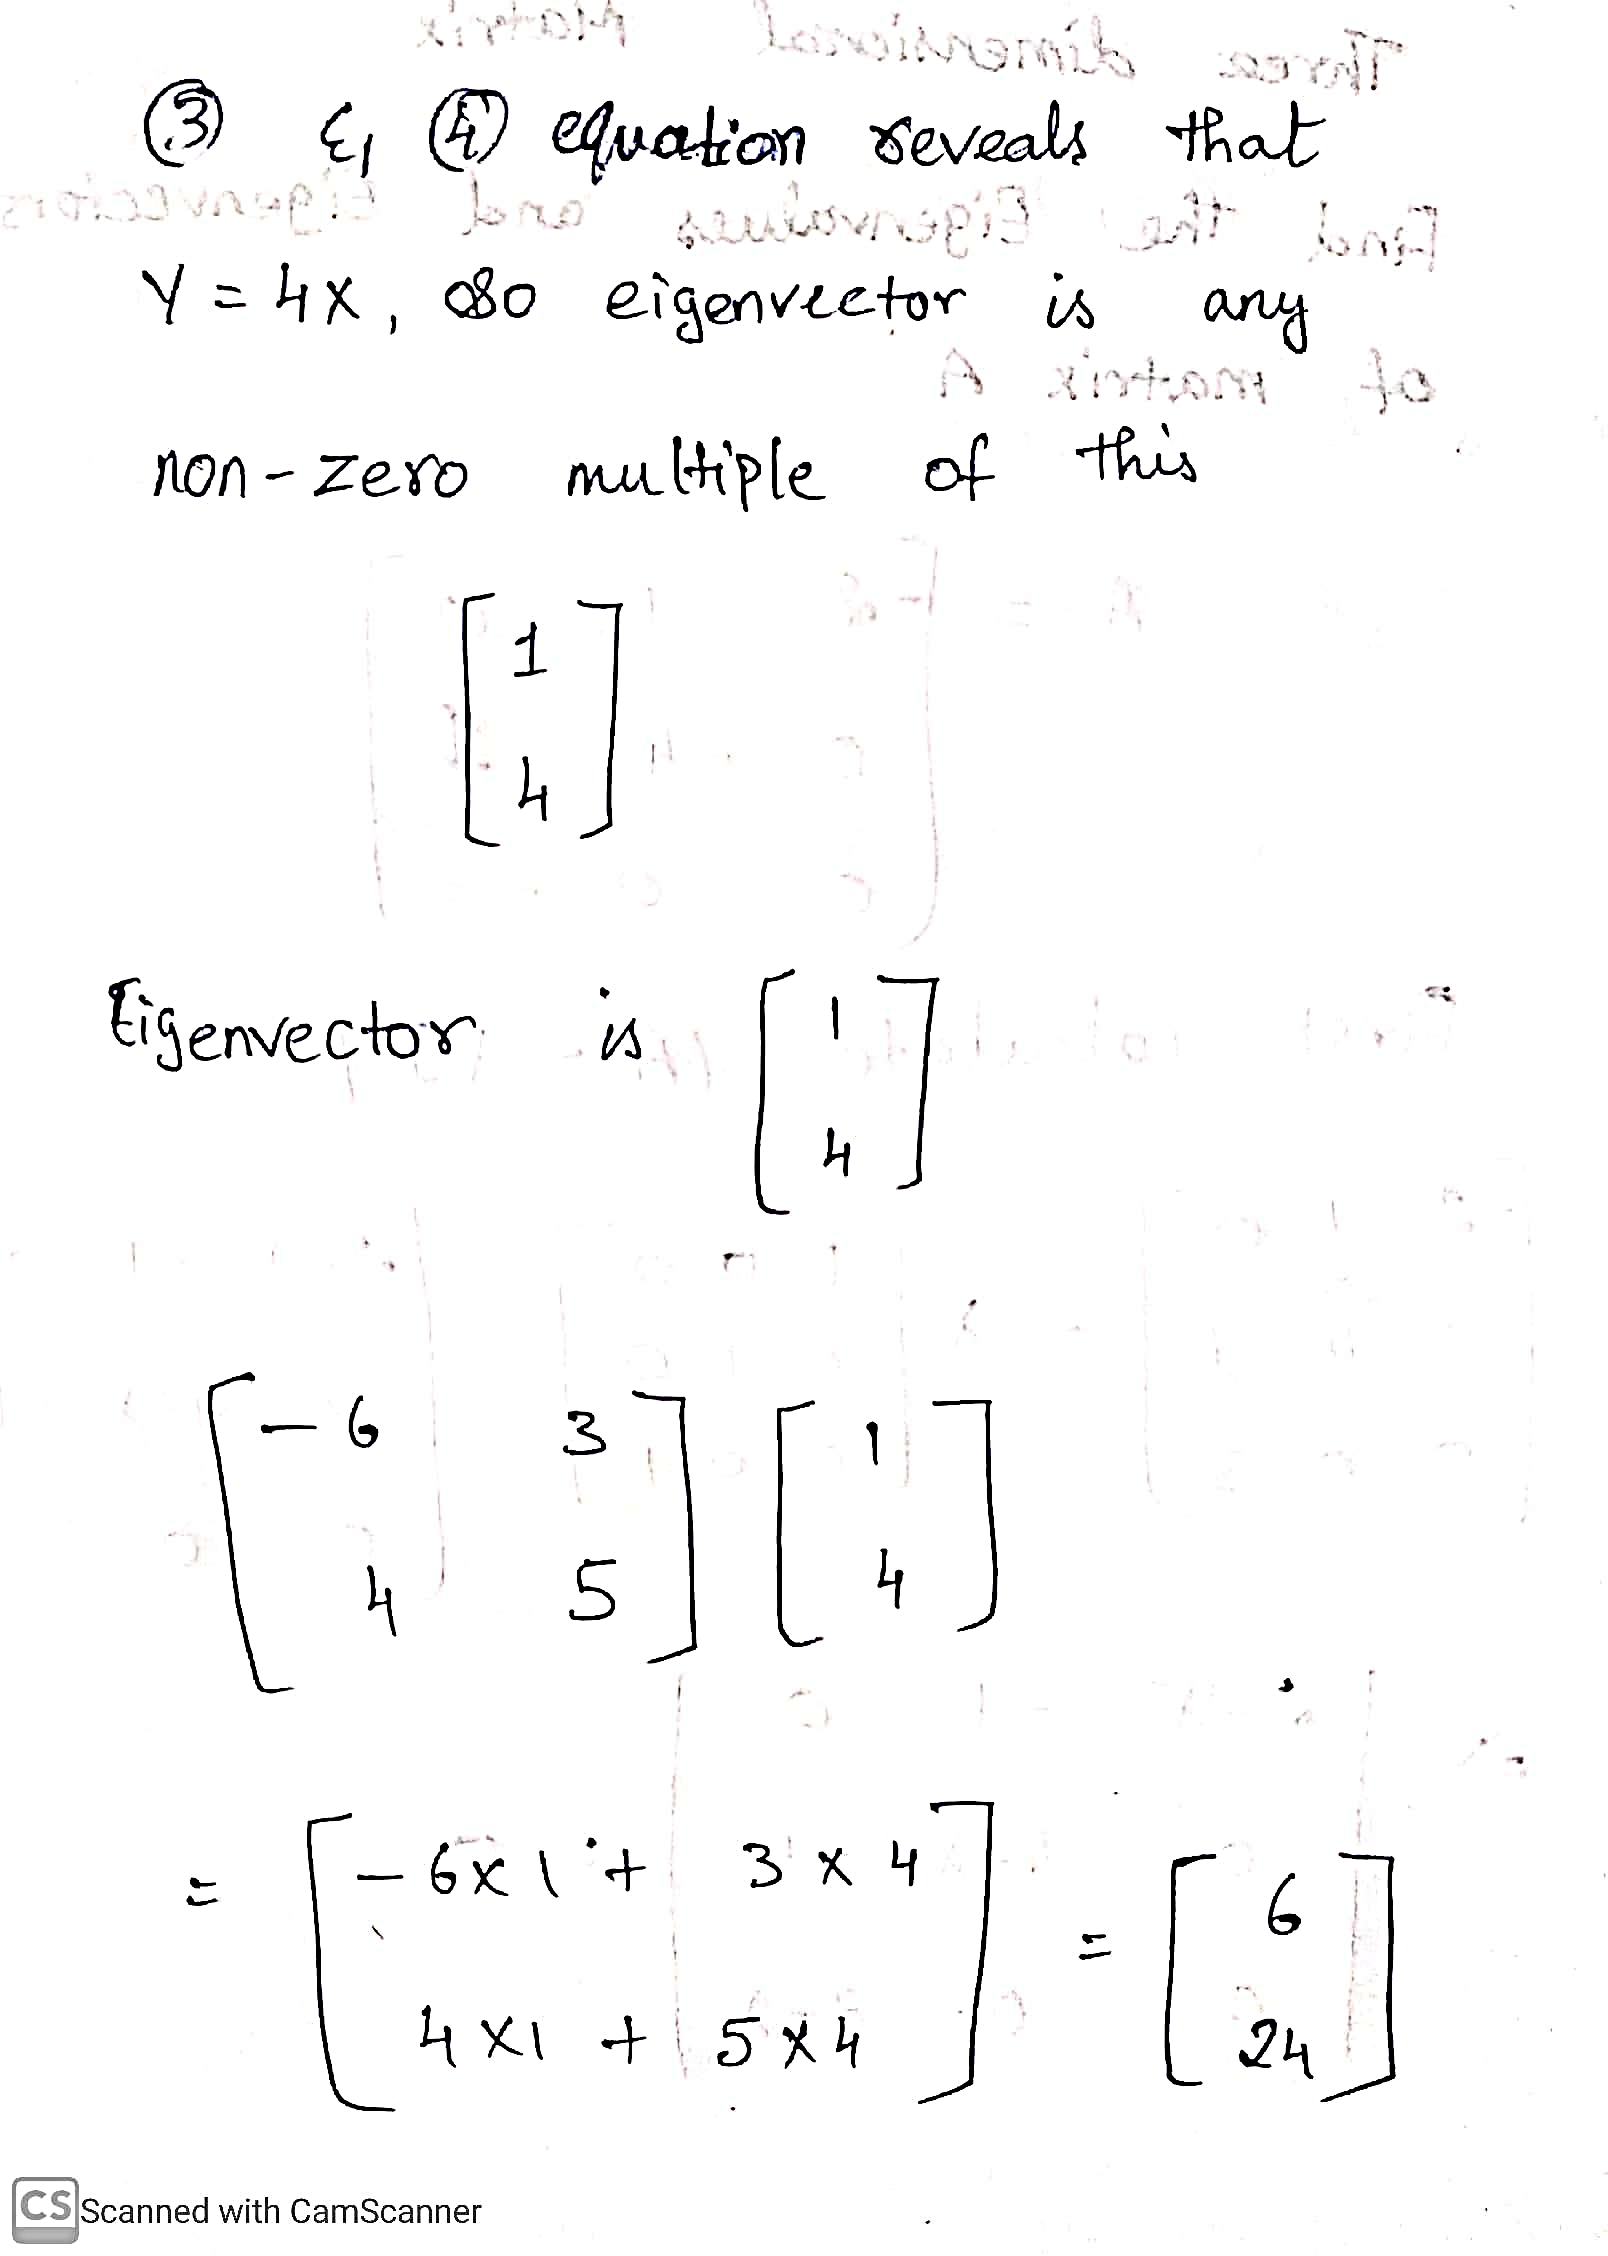 ③ & ④ equation reveals that
Y = 4X, so eigenvector is any
non-zero multiple of this
[ 1
4 ]
Eigenvector is [ 1
4 ]
[ -6 3 ] [ 1 ]
[ 4 5 ] [ 4 ]
= [ -6x1 + 3x4 ] = [ 6 ]
[ 4x1 + 5x4 ] [ 24 ]
CS Scanned with CamScanner